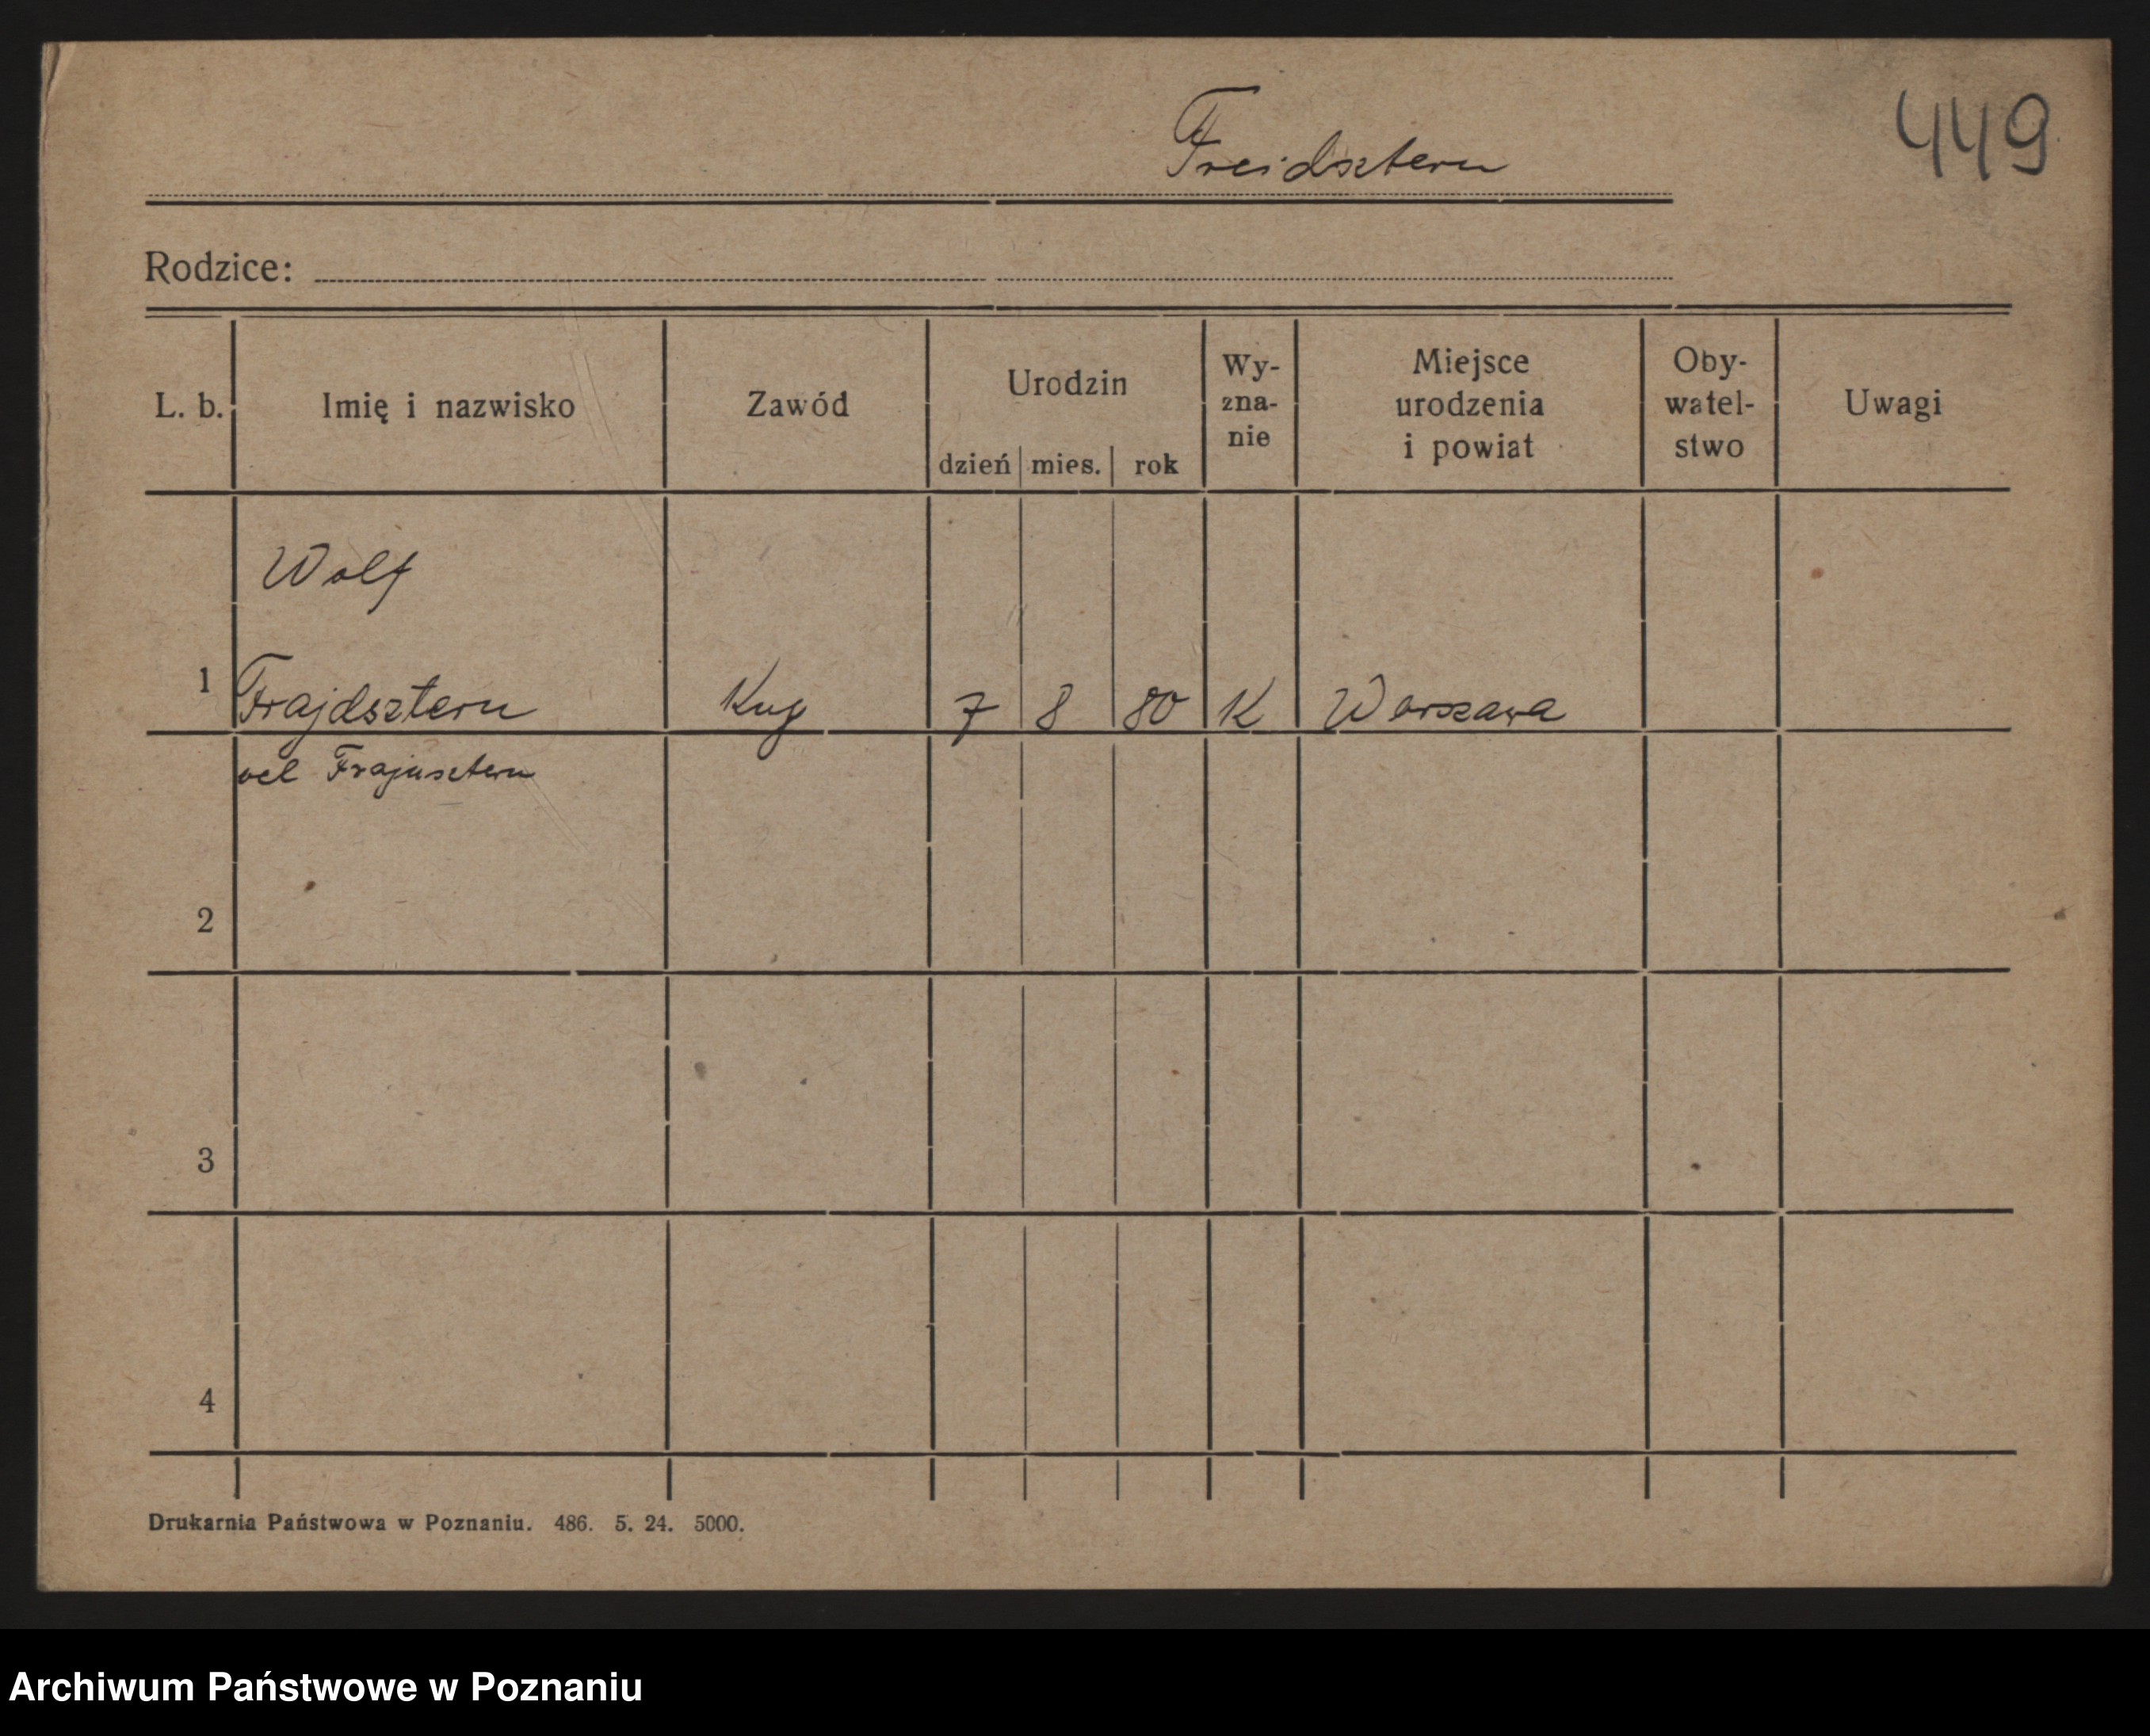 449
Freidsztern
Rodzice:
L. b. Imię i nazwisko Zawód Urodzin dzień mies. rok Wy-zna-nie Miejsce urodzenia i powiat Oby-watel-stwo Uwagi
Wolf
1 Frajdsztern Kup 7 8 80 K Warszawa
vel Frajnsztern
2
3
4
Drukarnia Państwowa w Poznaniu. 486. 5. 24. 5000.
Archiwum Państwowe w Poznaniu